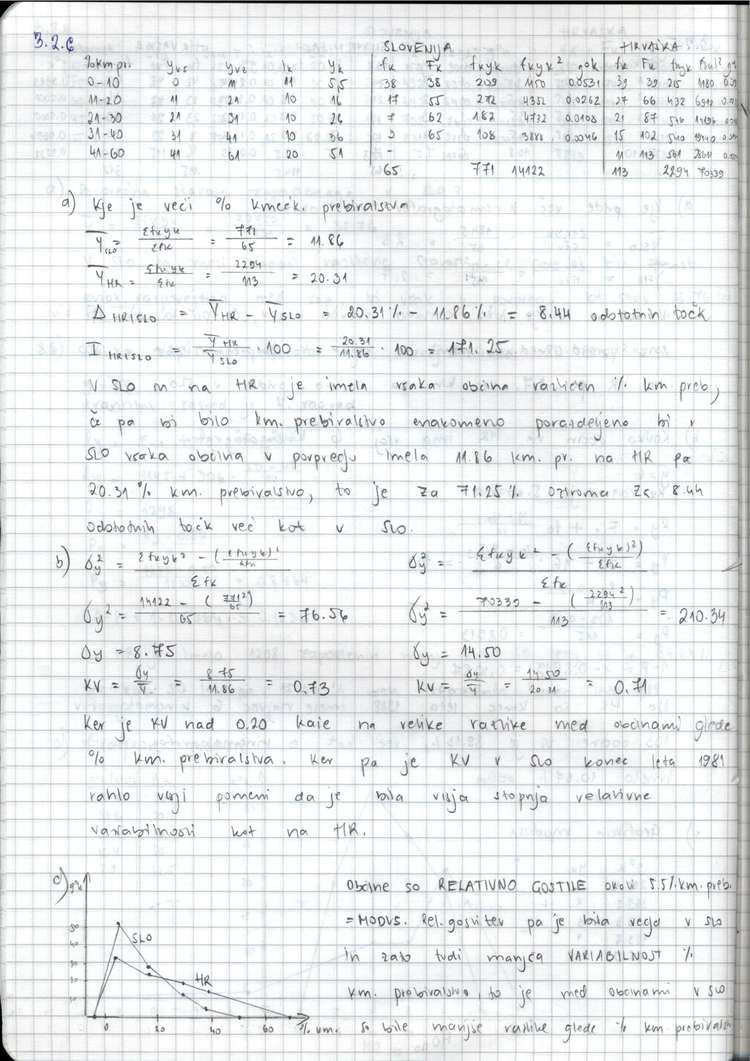 3.2.6
SLOVENIJA HRVAŠKA
%km.pri yk1 yk2 ik yk fk Fk fkyk fkyk² gok fk Fk fkyk
0-10 0 11 11 5,5 38 38 209 1150 0.0531 39 39 215 1180
11-20 11 21 10 16 17 55 272 4352 0.0262 27 66 432 6912
21-30 21 31 10 26 7 62 182 4732 0.0108 21 87 546 14196
31-40 31 41 10 36 3 65 108 3888 0.0046 15 102 540 19440
41-60 41 61 20 51 - 11 113 561 28611
65 771 14122 113 2294 70339
a) Kje je veči % kmečk. prebiralstva
ȲSLO = Σfkyk/Σfk = 771/65 = 11.86
ȲHR = Σfkyk/Σfk = 2294/113 = 20.31
Δ HR1SLO = ȲHR - ȲSLO = 20.31% - 11.86% = 8.44 odstotnih točk
I HR1SLO = ȲHR/ȲSLO · 100 = 20.31/11.86 · 100 = 171.25
V SLO in na HR je imela vsaka občina različen % km. preb,
če pa bi bilo km. prebivalstvo enakomeno porazdeljeno bi v
SLO vsaka občina v povprečju imela 11.86 km. pr. na HR pa
20.31 % km. prebivalstvo, to je za 71.25% oziroma za 8.44
odstotnih točk več kot v SLO.
b) σy² = (Σfkyk² - ((Σfkyk)²/Σfk))/Σfk σy² = (Σfkyk² - ((Σfkyk)²/Σfk))/Σfk
σy² = (14122 - (771²/65))/65 = 76.56 σy² = (70339 - (2294²/113))/113 = 210.34
σy = 8.75 σy = 14.50
KV = σy/Ȳ = 8.75/11.86 = 0.73 KV = σy/Ȳ = 14.50/20.31 = 0.71
Ker je KV nad 0.20 kaže na velike razlike med občinami glede
% km. prebiralstva. Ker pa je KV v SLO konec leta 1981
rahlo višji pomeni da je bila višja stopnja relativne
variabilnosti kot na HR.
c) Občine so RELATIVNO GOSTILE okoli 5.5% km. preb.
= MODUS. Rel. gostitev pa je bila večja v SLO
in zato tudi manjša VARIABILNOST %
km. prebivalstva, to je med občinami v SLO
so bile manjše razlike glede % km prebivalstv
50
40
30
20
10
SLO
HR
0 20 40 60 % km.